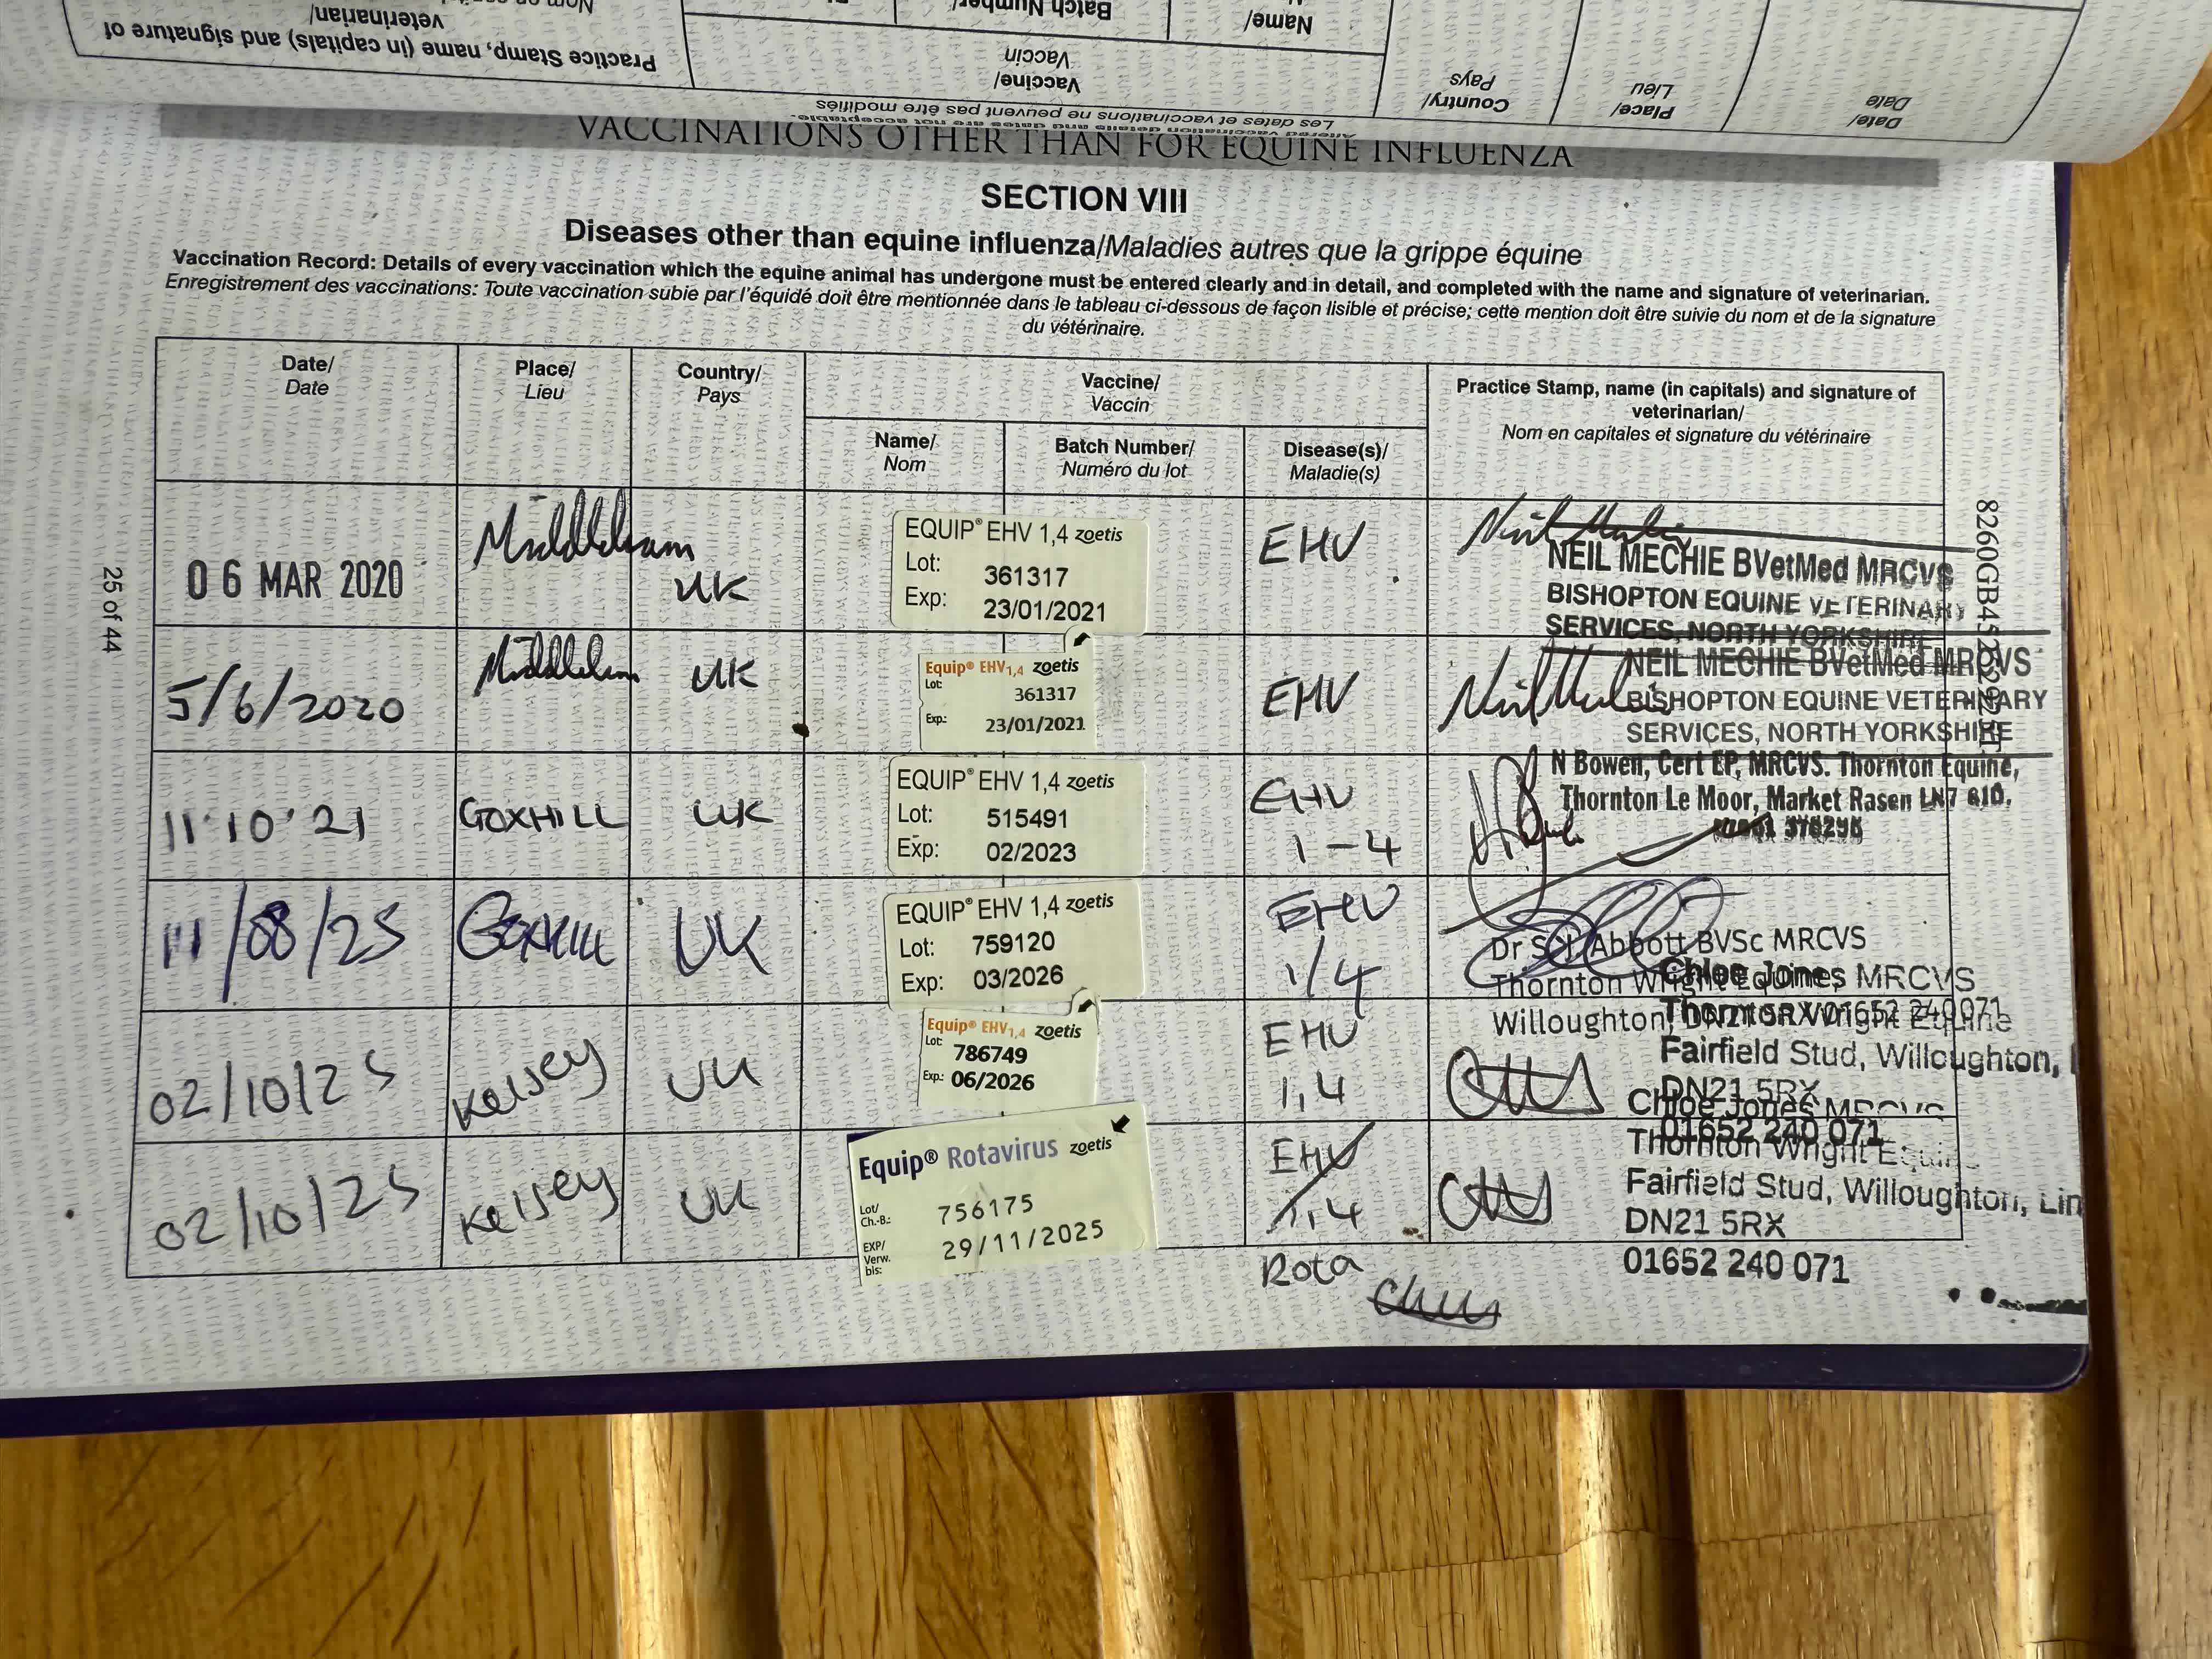 Practice Stamp, name (in capitals) and signature of
veterinarian/
Vaccine/
Vaccin
Name/
Batch Number/
Country/
Pays
Place/
Lieu
Date/
Date
Les dates et vaccinations ne peuvent pas être modifiés
VACCINATIONS OTHER THAN FOR EQUINE INFLUENZA
SECTION VIII
Diseases other than equine influenza/Maladies autres que la grippe équine
Vaccination Record: Details of every vaccination which the equine animal has undergone must be entered clearly and in detail, and completed with the name and signature of veterinarian.
Enregistrement des vaccinations: Toute vaccination subie par l'équidé doit être mentionnée dans le tableau ci-dessous de façon lisible et précise; cette mention doit être suivie du nom et de la signature
du vétérinaire.
Date/
Date
Place/
Lieu
Country/
Pays
Vaccine/
Vaccin
Name/
Nom
Batch Number/
Numéro du lot
Disease(s)/
Maladie(s)
Practice Stamp, name (in capitals) and signature of
veterinarian/
Nom en capitales et signature du vétérinaire
06 MAR 2020
Middleham
UK
EQUIP® EHV 1,4 zoetis
Lot: 361317
Exp: 23/01/2021
EHV
NEIL MECHIE BVetMed MRCVS
BISHOPTON EQUINE VETERINARY
SERVICES, NORTH YORKSHIRE
5/6/2020
Middleham
UK
Equip® EHV1,4 zoetis
Lot: 361317
Exp.: 23/01/2021
EHV
NEIL MECHIE BVetMed MRCVS
BISHOPTON EQUINE VETERINARY
SERVICES, NORTH YORKSHIRE
11.10.21
GOXHILL
UK
EQUIP® EHV 1,4 zoetis
Lot: 515491
Exp: 02/2023
EHV
1-4
N Bowen, Cert EP, MRCVS. Thornton Equine,
Thornton Le Moor, Market Rasen LN7
11/08/25
Goxhill
UK
EQUIP® EHV 1,4 zoetis
Lot: 759120
Exp: 03/2026
EHV
1/4
Abbott BVSc MRCVS
Thornton Wright Equine,
Willoughton, DN21 5RX 01652 240071
02/10/25
Kelsey
UK
Equip® EHV1,4 zoetis
Lot: 786749
Exp.: 06/2026
EHV
1,4
Chloe Jones MRCVS
Thornton Wright Equine
Fairfield Stud, Willoughton,
DN21 5RX
01652 240 071
02/10/25
Kelsey
UK
Equip® Rotavirus zoetis
Lot/
Ch.-B.: 756175
EXP/
Verw.
bis: 29/11/2025
EHV
1,4
Rota
Chloe Jones MRCVS
Thornton Wright Equine
Fairfield Stud, Willoughton, Lin
DN21 5RX
01652 240 071
25 of 44